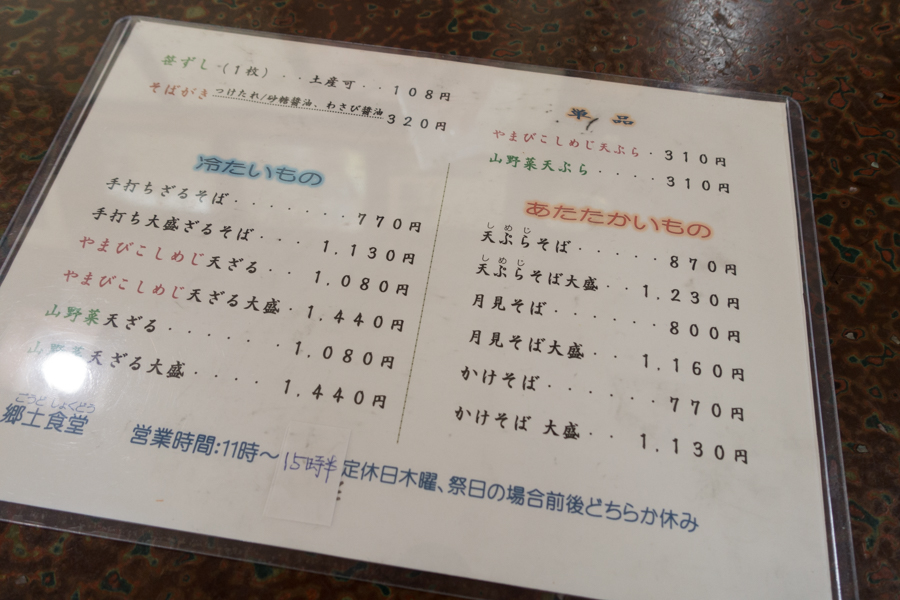 笹ずし (1枚)‥土産可‥108円
そばがき つけたれ/砂糖醤油、わさび醤油 320円
冷たいもの
手打ちざるそば・・・・・・・770円
手打ち大盛ざるそば・・・1.130円
やまびこしめじ天ざる・・1.080円
やまびこしめじ天ざる大盛・1.440円
山野菜天ざる・・・・・・1.080円
山野菜天ざる大盛・・・・1.440円
単品
やまびこしめじ天ぷら・310円
山野菜天ぷら・・・・310円
あたたかいもの
しめじ
天ぷらそば・・・・・870円
しめじ
天ぷらそば大盛・・1.230円
月見そば・・・・・・800円
月見そば大盛・・1.160円
かけそば・・・・・・770円
かけそば 大盛・・1.130円
ごうど しょくどう
郷土食堂
営業時間:11時～15時半 定休日木曜、祭日の場合前後どちらか休み